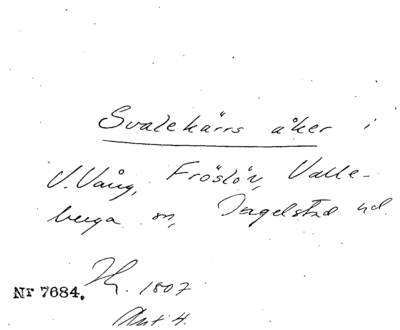 Svalekärrs åker i
V. Vång, Fröslöv, Valle-
berga sn, Ingelstad hd
Nr 7684. 1807
Akt 4.